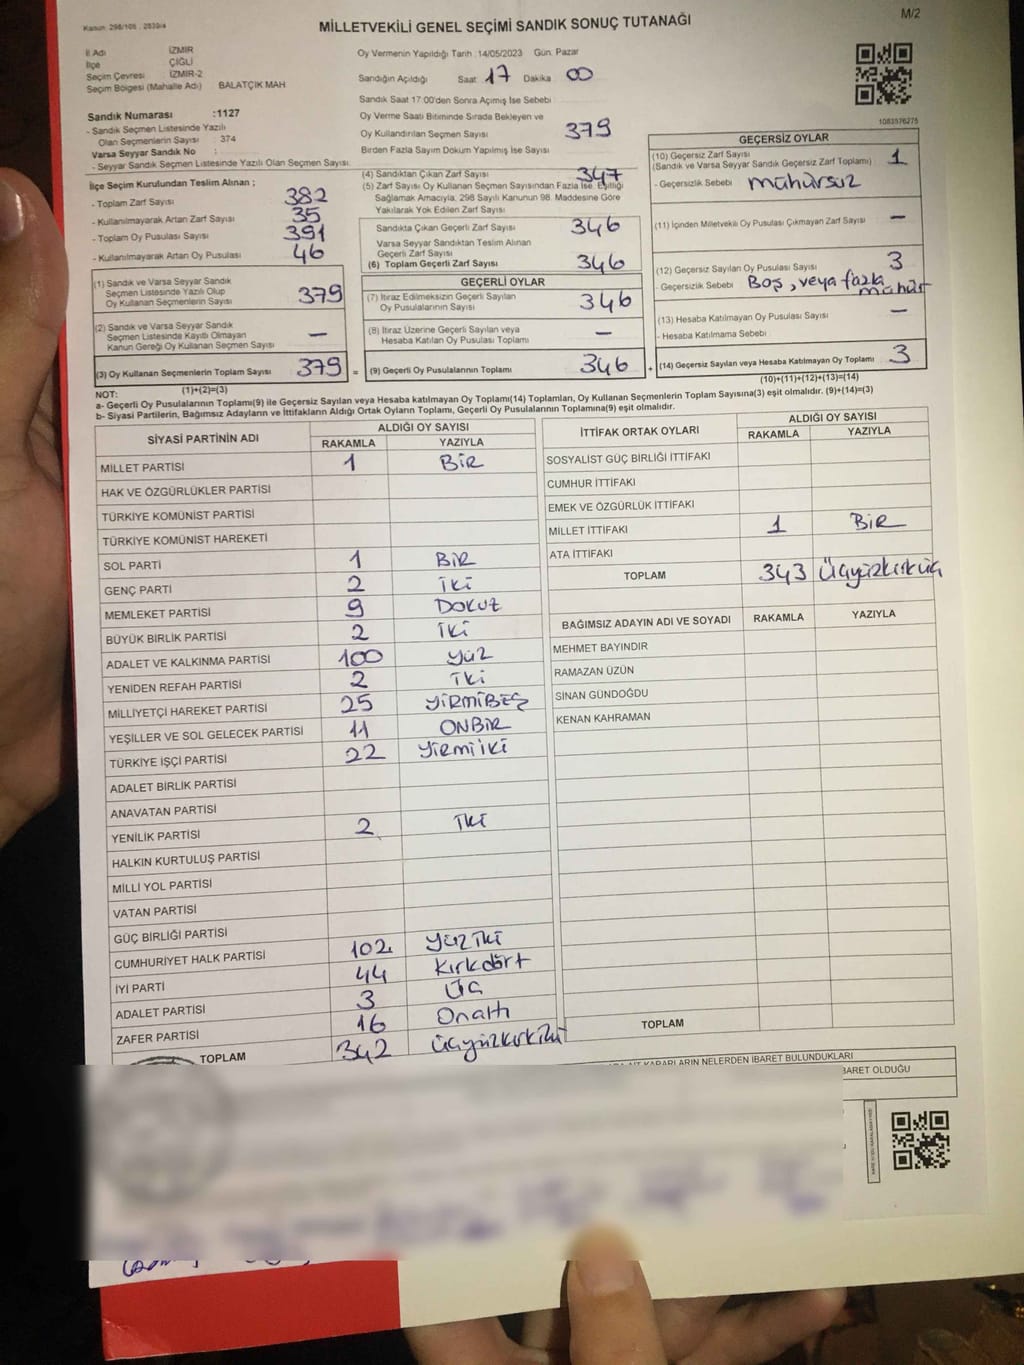 Kanun: 298/105 , 2839/4
MİLLETVEKİLİ GENEL SEÇİMİ SANDIK SONUÇ TUTANAĞI
M/2
İl Adı İZMİR
İlçe ÇİĞLİ
Seçim Çevresi İZMİR-2
Seçim Bölgesi (Mahalle Adı) BALATÇIK MAH
Sandık Numarası :1127
- Sandık Seçmen Listesinde Yazılı
Olan Seçmenlerin Sayısı : 374
Varsa Seyyar Sandık No :
- Seyyar Sandık Seçmen Listesinde Yazılı Olan Seçmen Sayısı:
Oy Vermenin Yapıldığı Tarih : 14/05/2023 Gün: Pazar
Sandığın Açıldığı Saat: 17 Dakika : 00
Sandık Saat 17:00'den Sonra Açılmış İse Sebebi :
Oy Verme Saati Bitiminde Sırada Bekleyen ve
Oy Kullandırılan Seçmen Sayısı : 379
Birden Fazla Sayım Döküm Yapılmış İse Sayısı :
1083576275
İlçe Seçim Kurulundan Teslim Alınan ;
- Toplam Zarf Sayısı : 382
- Kullanılmayarak Artan Zarf Sayısı : 35
- Toplam Oy Pusulası Sayısı : 391
- Kullanılmayarak Artan Oy Pusulası : 46
(1) Sandık ve Varsa Seyyar Sandık
Seçmen Listesinde Yazılı Olup
Oy Kullanan Seçmenlerin Sayısı : 379
(2) Sandık ve Varsa Seyyar Sandık
Seçmen Listesinde Kayıtlı Olmayan
Kanun Gereği Oy Kullanan Seçmen Sayısı : –
(3) Oy Kullanan Seçmenlerin Toplam Sayısı : 379 =
(1)+(2)=(3)
(4) Sandıktan Çıkan Zarf Sayısı : 347
(5) Zarf Sayısı Oy Kullanan Seçmen Sayısından Fazla İse, Eşitliği
Sağlamak Amacıyla, 298 Sayılı Kanunun 98. Maddesine Göre
Yakılarak Yok Edilen Zarf Sayısı :
Sandıkta Çıkan Geçerli Zarf Sayısı : 346
Varsa Seyyar Sandıktan Teslim Alınan
Geçerli Zarf Sayısı :
(6) Toplam Geçerli Zarf Sayısı : 346
GEÇERLİ OYLAR
(7) İtiraz Edilmeksizin Geçerli Sayılan
Oy Pusulalarının Sayısı : 346
(8) İtiraz Üzerine Geçerli Sayılan veya
Hesaba Katılan Oy Pusulası Toplamı : –
(9) Geçerli Oy Pusulalarının Toplamı : 346 +
GEÇERSİZ OYLAR
(10) Geçersiz Zarf Sayısı
(Sandık ve Varsa Seyyar Sandık Geçersiz Zarf Toplamı) : 1
- Geçersizlik Sebebi : mühürsüz
(11) İçinden Milletvekili Oy Pusulası Çıkmayan Zarf Sayısı : –
(12) Geçersiz Sayılan Oy Pusulası Sayısı : 3
- Geçersizlik Sebebi : Boş, veya fazla mühür
(13) Hesaba Katılmayan Oy Pusulası Sayısı : –
- Hesaba Katılmama Sebebi :
(14) Geçersiz Sayılan veya Hesaba Katılmayan Oy Toplamı : 3
(10)+(11)+(12)+(13)=(14)
NOT:
a- Geçerli Oy Pusulalarının Toplamı(9) ile Geçersiz Sayılan veya Hesaba katılmayan Oy Toplamı(14) Toplamları, Oy Kullanan Seçmenlerin Toplam Sayısına(3) eşit olmalıdır. (9)+(14)=(3)
b- Siyasi Partilerin, Bağımsız Adayların ve İttifakların Aldığı Ortak Oyların Toplamı, Geçerli Oy Pusulalarının Toplamına(9) eşit olmalıdır.
SİYASİ PARTİNİN ADI ALDIĞI OY SAYISI
RAKAMLA YAZIYLA
MİLLET PARTİSİ 1 BİR
HAK VE ÖZGÜRLÜKLER PARTİSİ
TÜRKİYE KOMÜNİST PARTİSİ
TÜRKİYE KOMÜNİST HAREKETİ
SOL PARTİ 1 BİR
GENÇ PARTİ 2 İKİ
MEMLEKET PARTİSİ 9 DOKUZ
BÜYÜK BİRLİK PARTİSİ 2 İKİ
ADALET VE KALKINMA PARTİSİ 100 YÜZ
YENİDEN REFAH PARTİSİ 2 İKİ
MİLLİYETÇİ HAREKET PARTİSİ 25 YİRMİBEŞ
YEŞİLLER VE SOL GELECEK PARTİSİ 11 ONBİR
TÜRKİYE İŞÇİ PARTİSİ 22 YİRMİİKİ
ADALET BİRLİK PARTİSİ
ANAVATAN PARTİSİ
YENİLİK PARTİSİ 2 İKİ
HALKIN KURTULUŞ PARTİSİ
MİLLİ YOL PARTİSİ
VATAN PARTİSİ
GÜÇ BİRLİĞİ PARTİSİ
CUMHURİYET HALK PARTİSİ 102 YÜZ İKİ
İYİ PARTİ 44 Kırkdört
ADALET PARTİSİ 3 Üç
ZAFER PARTİSİ 16 Onaltı
TOPLAM 342 üçyüzkırkiki
İTTİFAK ORTAK OYLARI ALDIĞI OY SAYISI
RAKAMLA YAZIYLA
SOSYALİST GÜÇ BİRLİĞİ İTTİFAKI
CUMHUR İTTİFAKI
EMEK VE ÖZGÜRLÜK İTTİFAKI
MİLLET İTTİFAKI 1 BİR
ATA İTTİFAKI
TOPLAM 343 Üçyüzkırküç
BAĞIMSIZ ADAYIN ADI VE SOYADI RAKAMLA YAZIYLA
MEHMET BAYINDIR
RAMAZAN ÜZÜN
SİNAN GÜNDOĞDU
KENAN KAHRAMAN
TOPLAM
KARARLARIN NELERDEN İBARET BULUNDUKLARI
İBARET OLDUĞU